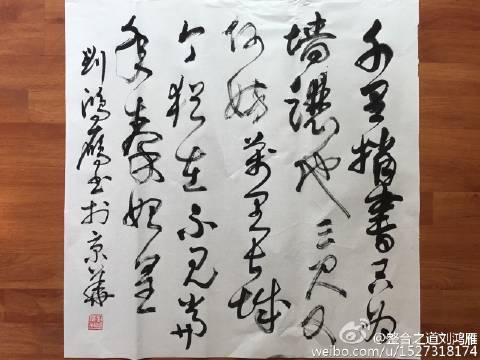 千里捎書只为
墙讓他三尺又
何妨萬里长城
今犹在不见当
年秦始皇
刘鸿雁书于京華
@整合之道刘鸿雁
weibo.com/u/1527318174